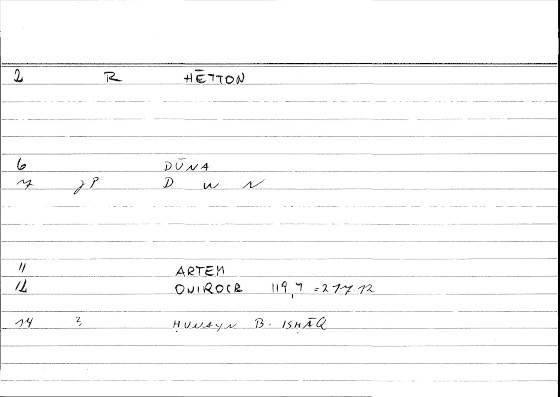 2 R HĒTTŌN
6 DŪNA
7 gP D W N
11 ARTEM
12 ONIROCR 119,7 = 277 12
14 2 HUNAYN B. ISHĀQ